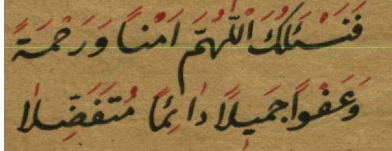 فَنَسْئَلُكَ اللّٰهُمَّ اَمْنًا وَرَحْمَةً
وَعَفْوًا جَمِيلًا دَائِمًا مُتَفَضِّلًا